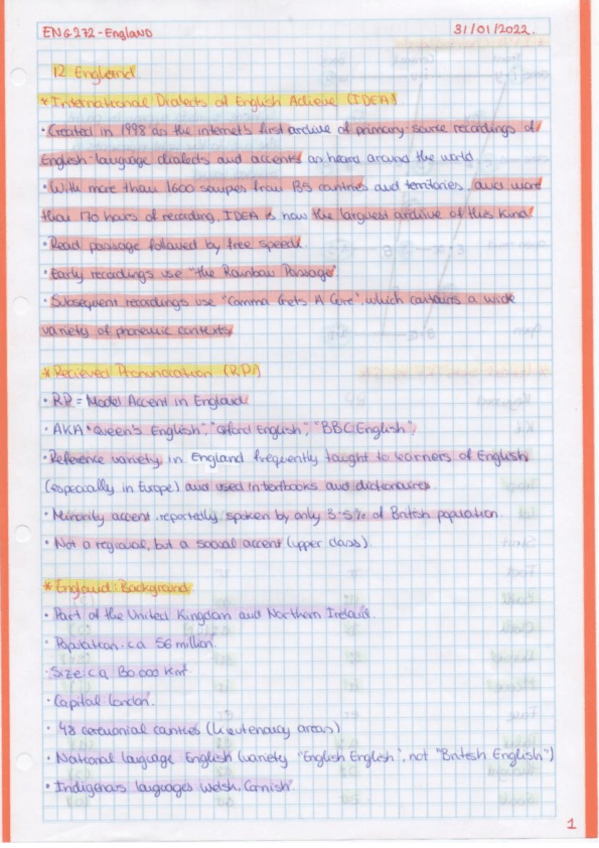 ENG272-England
31/01/2022.
12. England
*International Dialects of English Achieve (IDEA)
• Created in 1998 as the internet's first archive of primary-source recordings of
English-language dialects and accents as heard around the world.
• With more than 1600 samples from 135 countries and territories, and more
than 170 hours of recording, IDEA is now the largest archive of this kind.
• Read passage followed by free speech.
• Early recordings use "the Rainbow Passage".
• Subsequent recordings use "Comma Gets A Cure", which contains a wide
variety of phonemic contexts
*Recieved Pronunciation (RP)
• RP = Model Accent in England
• AKA "Queen's English", "Oxford English", "BBC English",
• Reference variety in England frequently taught to learners of English
(especially in Europe) and used in textbooks and dictionaires.
• Minority accent, reportedly spoken by only 3-5% of British population
• Not a regional, but a social accent (upper class).
*England: Background
• Part of the United Kingdom and Northern Ireland.
• Population: ca 56 million.
• Size: ca 130 000 Km²
• Capital: London.
• 48 ceremonial counties (Lieutenancy areas)
• National language: English (variety: "English English", not "British English")
• Indigenous languages: Welsh, Cornish.
1